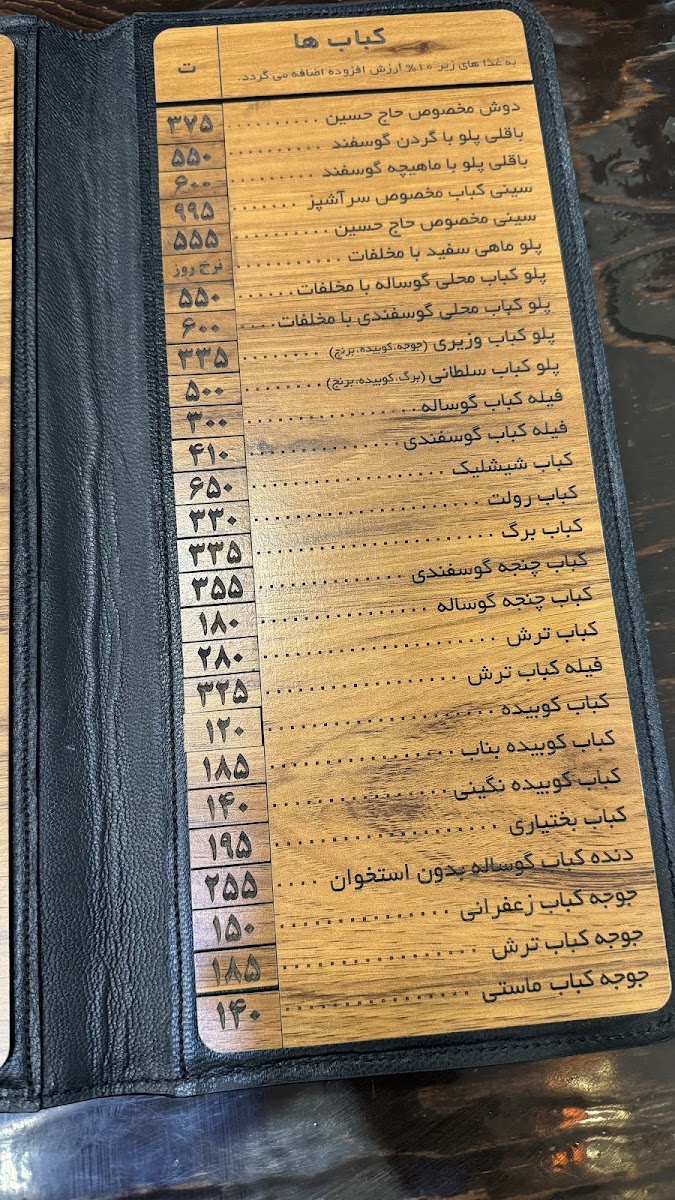 کباب ها ت
به غذا های زیر ۱۰% ارزش افزوده اضافه می گردد.
دوش مخصوص حاج حسین .......... ۳۷۵
باقلی پلو با گردن گوسفند .......... ۵۵۰
باقلی پلو با ماهیچه گوسفند .......... ۶۰۰
سینی کباب مخصوص سرآشپز ....... ۹۹۵
سینی مخصوص حاج حسین .......... ۵۵۵
پلو ماهی سفید با مخلفات ............ نرخ روز
پلو کباب محلی گوساله با مخلفات ....... ۵۵۰
پلو کباب محلی گوسفندی با مخلفات .... ۶۰۰
پلو کباب وزیری (جوجه، کوبیده، برنج) ........ ۳۳۵
پلو کباب سلطانی (برگ، کوبیده، برنج) ........ ۵۰۰
فیله کباب گوساله ................. ۳۰۰
فیله کباب گوسفندی ............... ۴۱۰
کباب شیشلیک ................... ۶۵۰
کباب رولت ....................... ۳۳۰
کباب برگ ........................ ۳۳۵
کباب چنجه گوسفندی .............. ۳۵۵
کباب چنجه گوساله ................ ۱۸۰
کباب ترش ....................... ۲۸۰
فیله کباب ترش ................... ۳۲۵
کباب کوبیده ..................... ۱۲۰
کباب کوبیده بناب ................. ۱۸۵
کباب کوبیده نگینی ................ ۱۴۰
کباب بختیاری .................... ۱۹۵
دنده کباب گوساله بدون استخوان .... ۲۵۵
جوجه کباب زعفرانی ............... ۱۵۰
جوجه کباب ترش .................. ۱۸۵
جوجه کباب ماستی ................ ۱۴۰